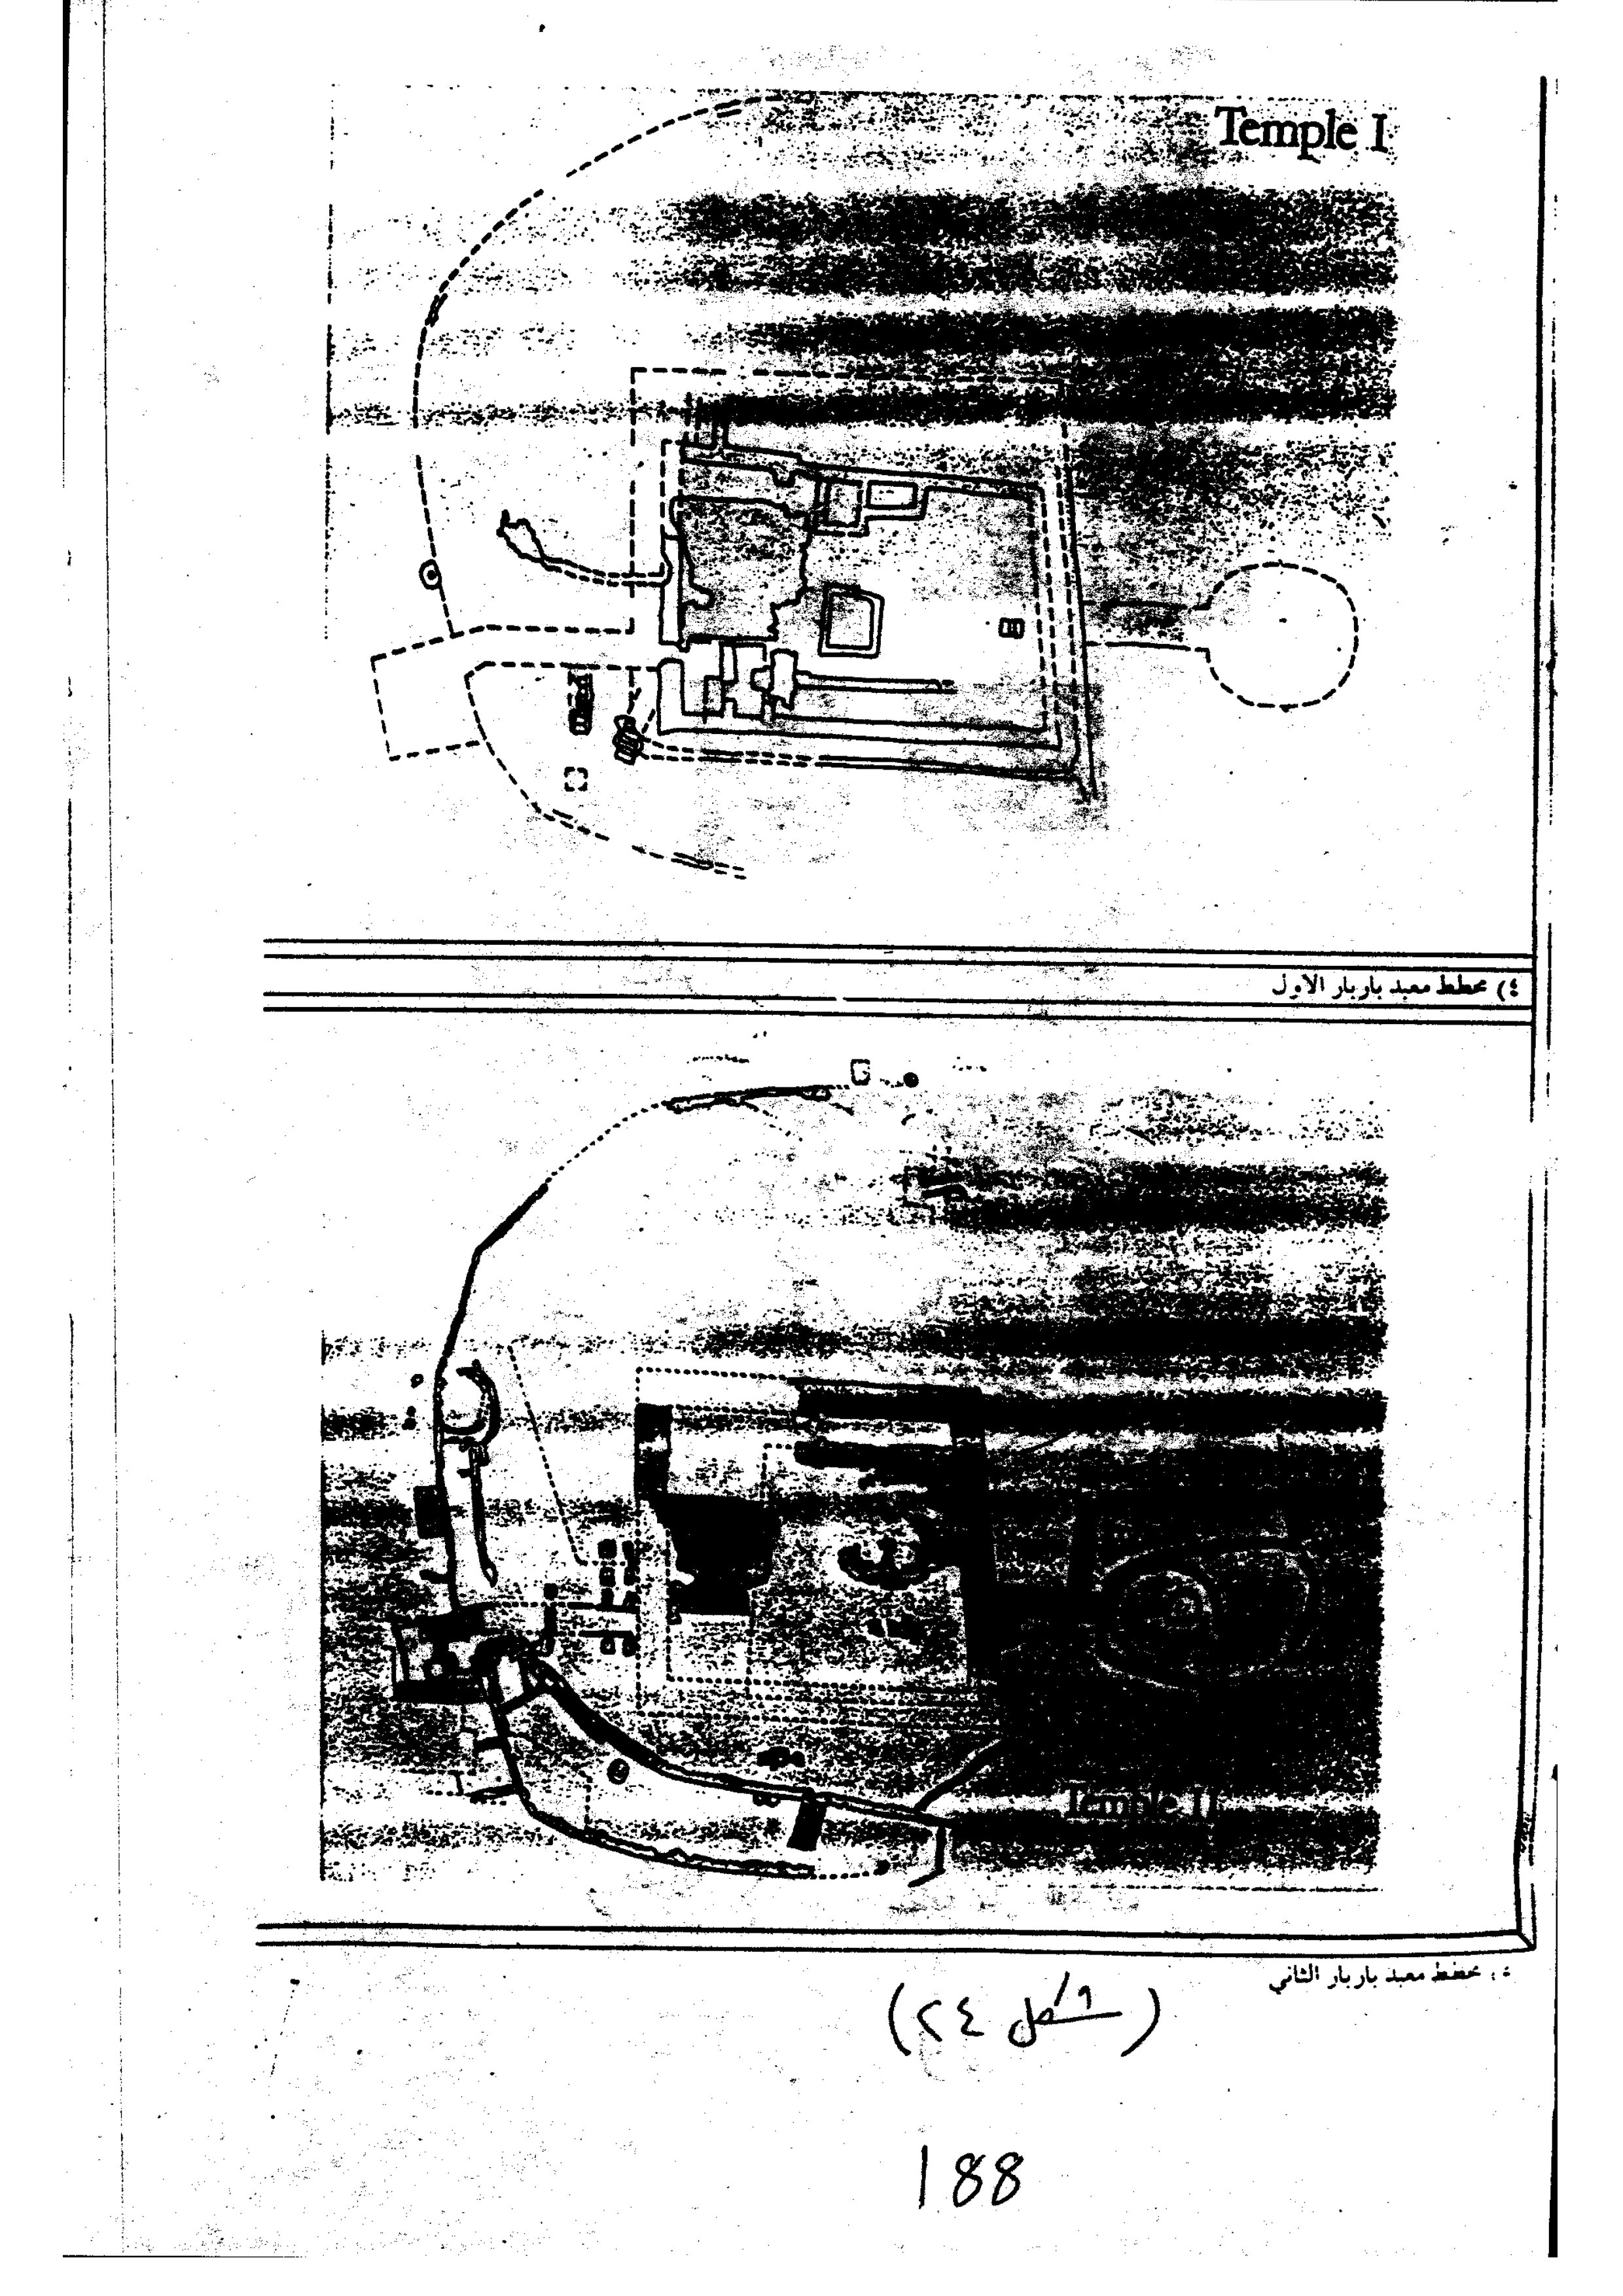 Temple I
٤) مخطط معبد باربار الاول
Temple II
مخطط معبد باربار الثاني
(شكل ٢٤)
188